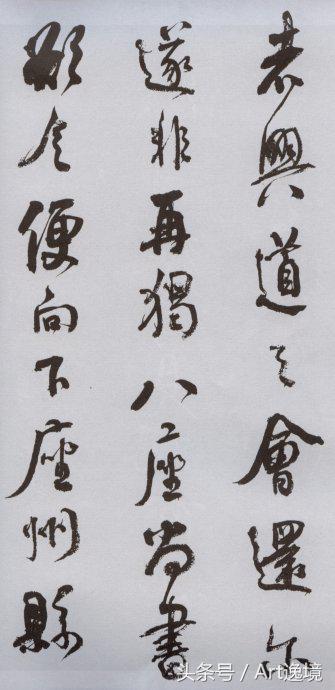 者興道之會還尓
遂非再猲八座尚書
欲令便向下座州縣
头条号 / Art逸境